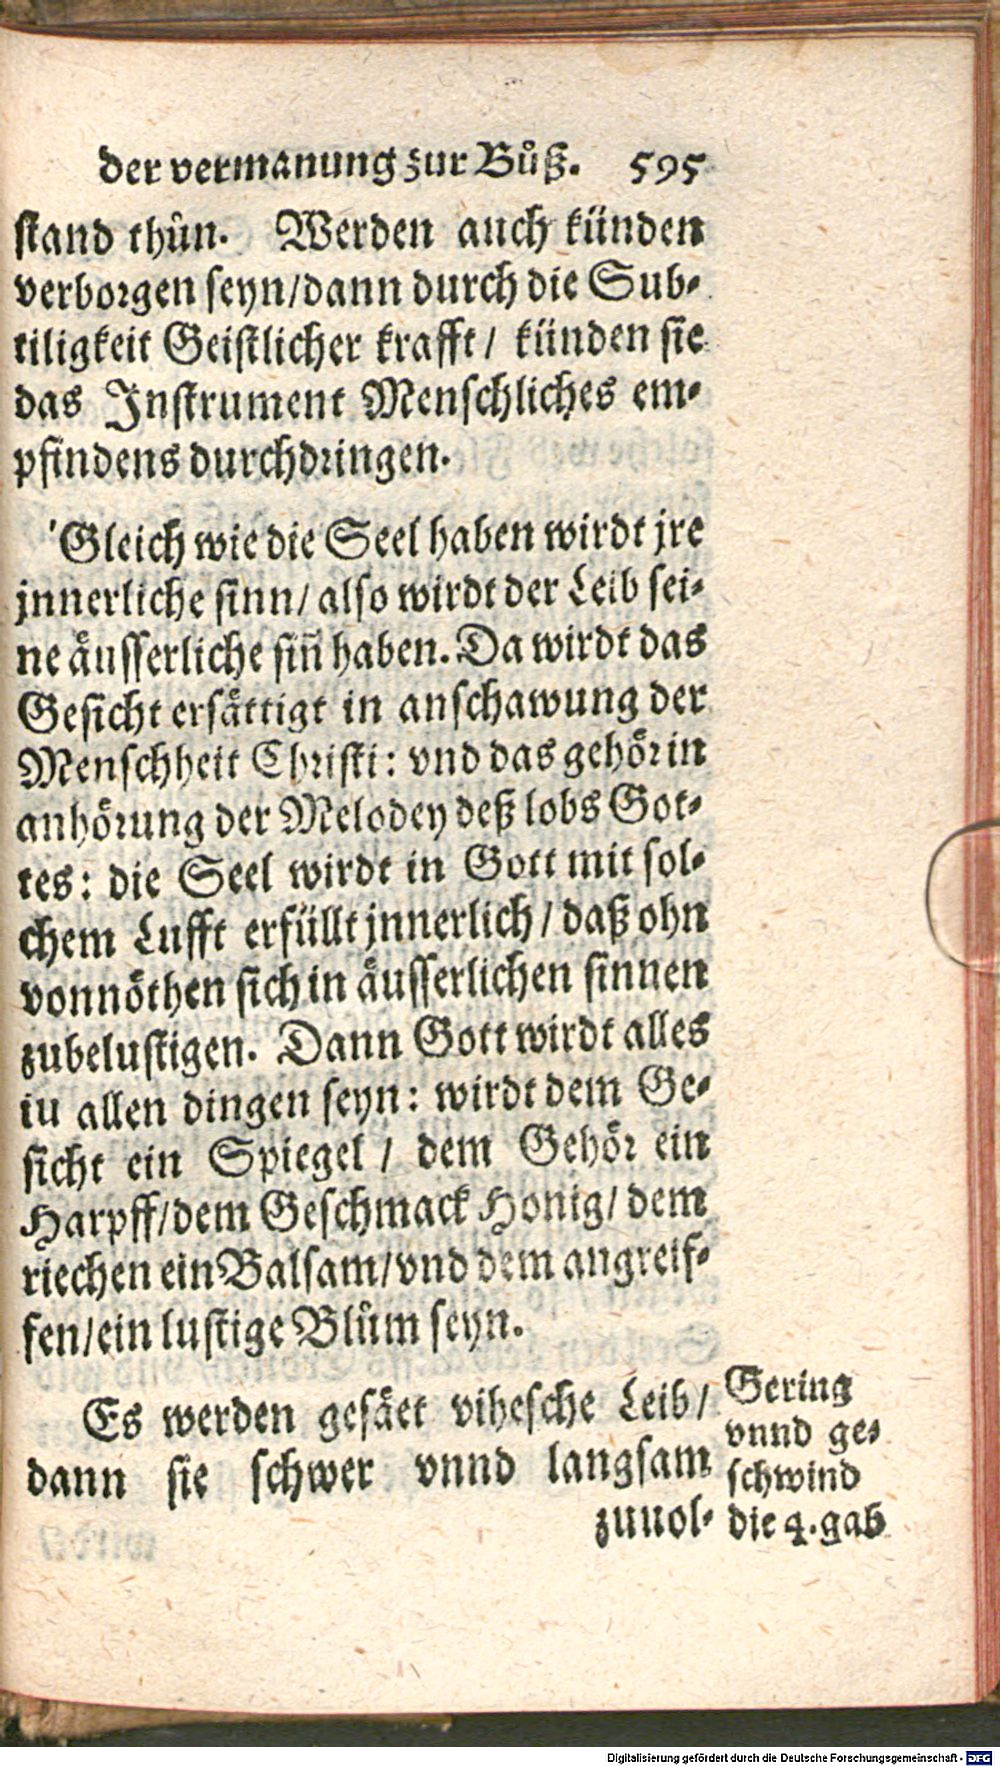 der vermanung zur Bůß. 595
stand thůn. Werden auch künden
verborgen seyn/dann durch die Sub-
tiligkeit Geistlicher krafft/ künden sie
das Instrument Menschliches em-
pfindens durchdringen.
Gleich wie die Seel haben wirdt jre
jnnerliche sinn/ also wirdt der Leib sei-
ne äusserliche siñ haben. Da wirdt das
Gesicht ersättigt in anschawung der
Menschheit Christi: vnd das gehör in
anhörung der Melodey deß lobs Got-
tes: die Seel wirdt in Gott mit sol-
chem Lufft erfüllt jnnerlich/ daß ohn
vonnöthen sich in äusserlichen sinnen
zubelustigen. Dann Gott wirdt alles
iu allen dingen seyn: wirdt dem Ge-
sicht ein Spiegel/ dem Gehör ein
Harpff/dem Geschmack Honig/ dem
riechen ein Balsam/vnd dem angreif-
fen/ein lustige Blům seyn.
Es werden gesäet vihesche Leib/
dann sie schwer vnnd langsam
zuuol-
Gering
vnnd ge-
schwind
die 4. gab
Digitalisierung gefördert durch die Deutsche Forschungsgemeinschaft - DFG